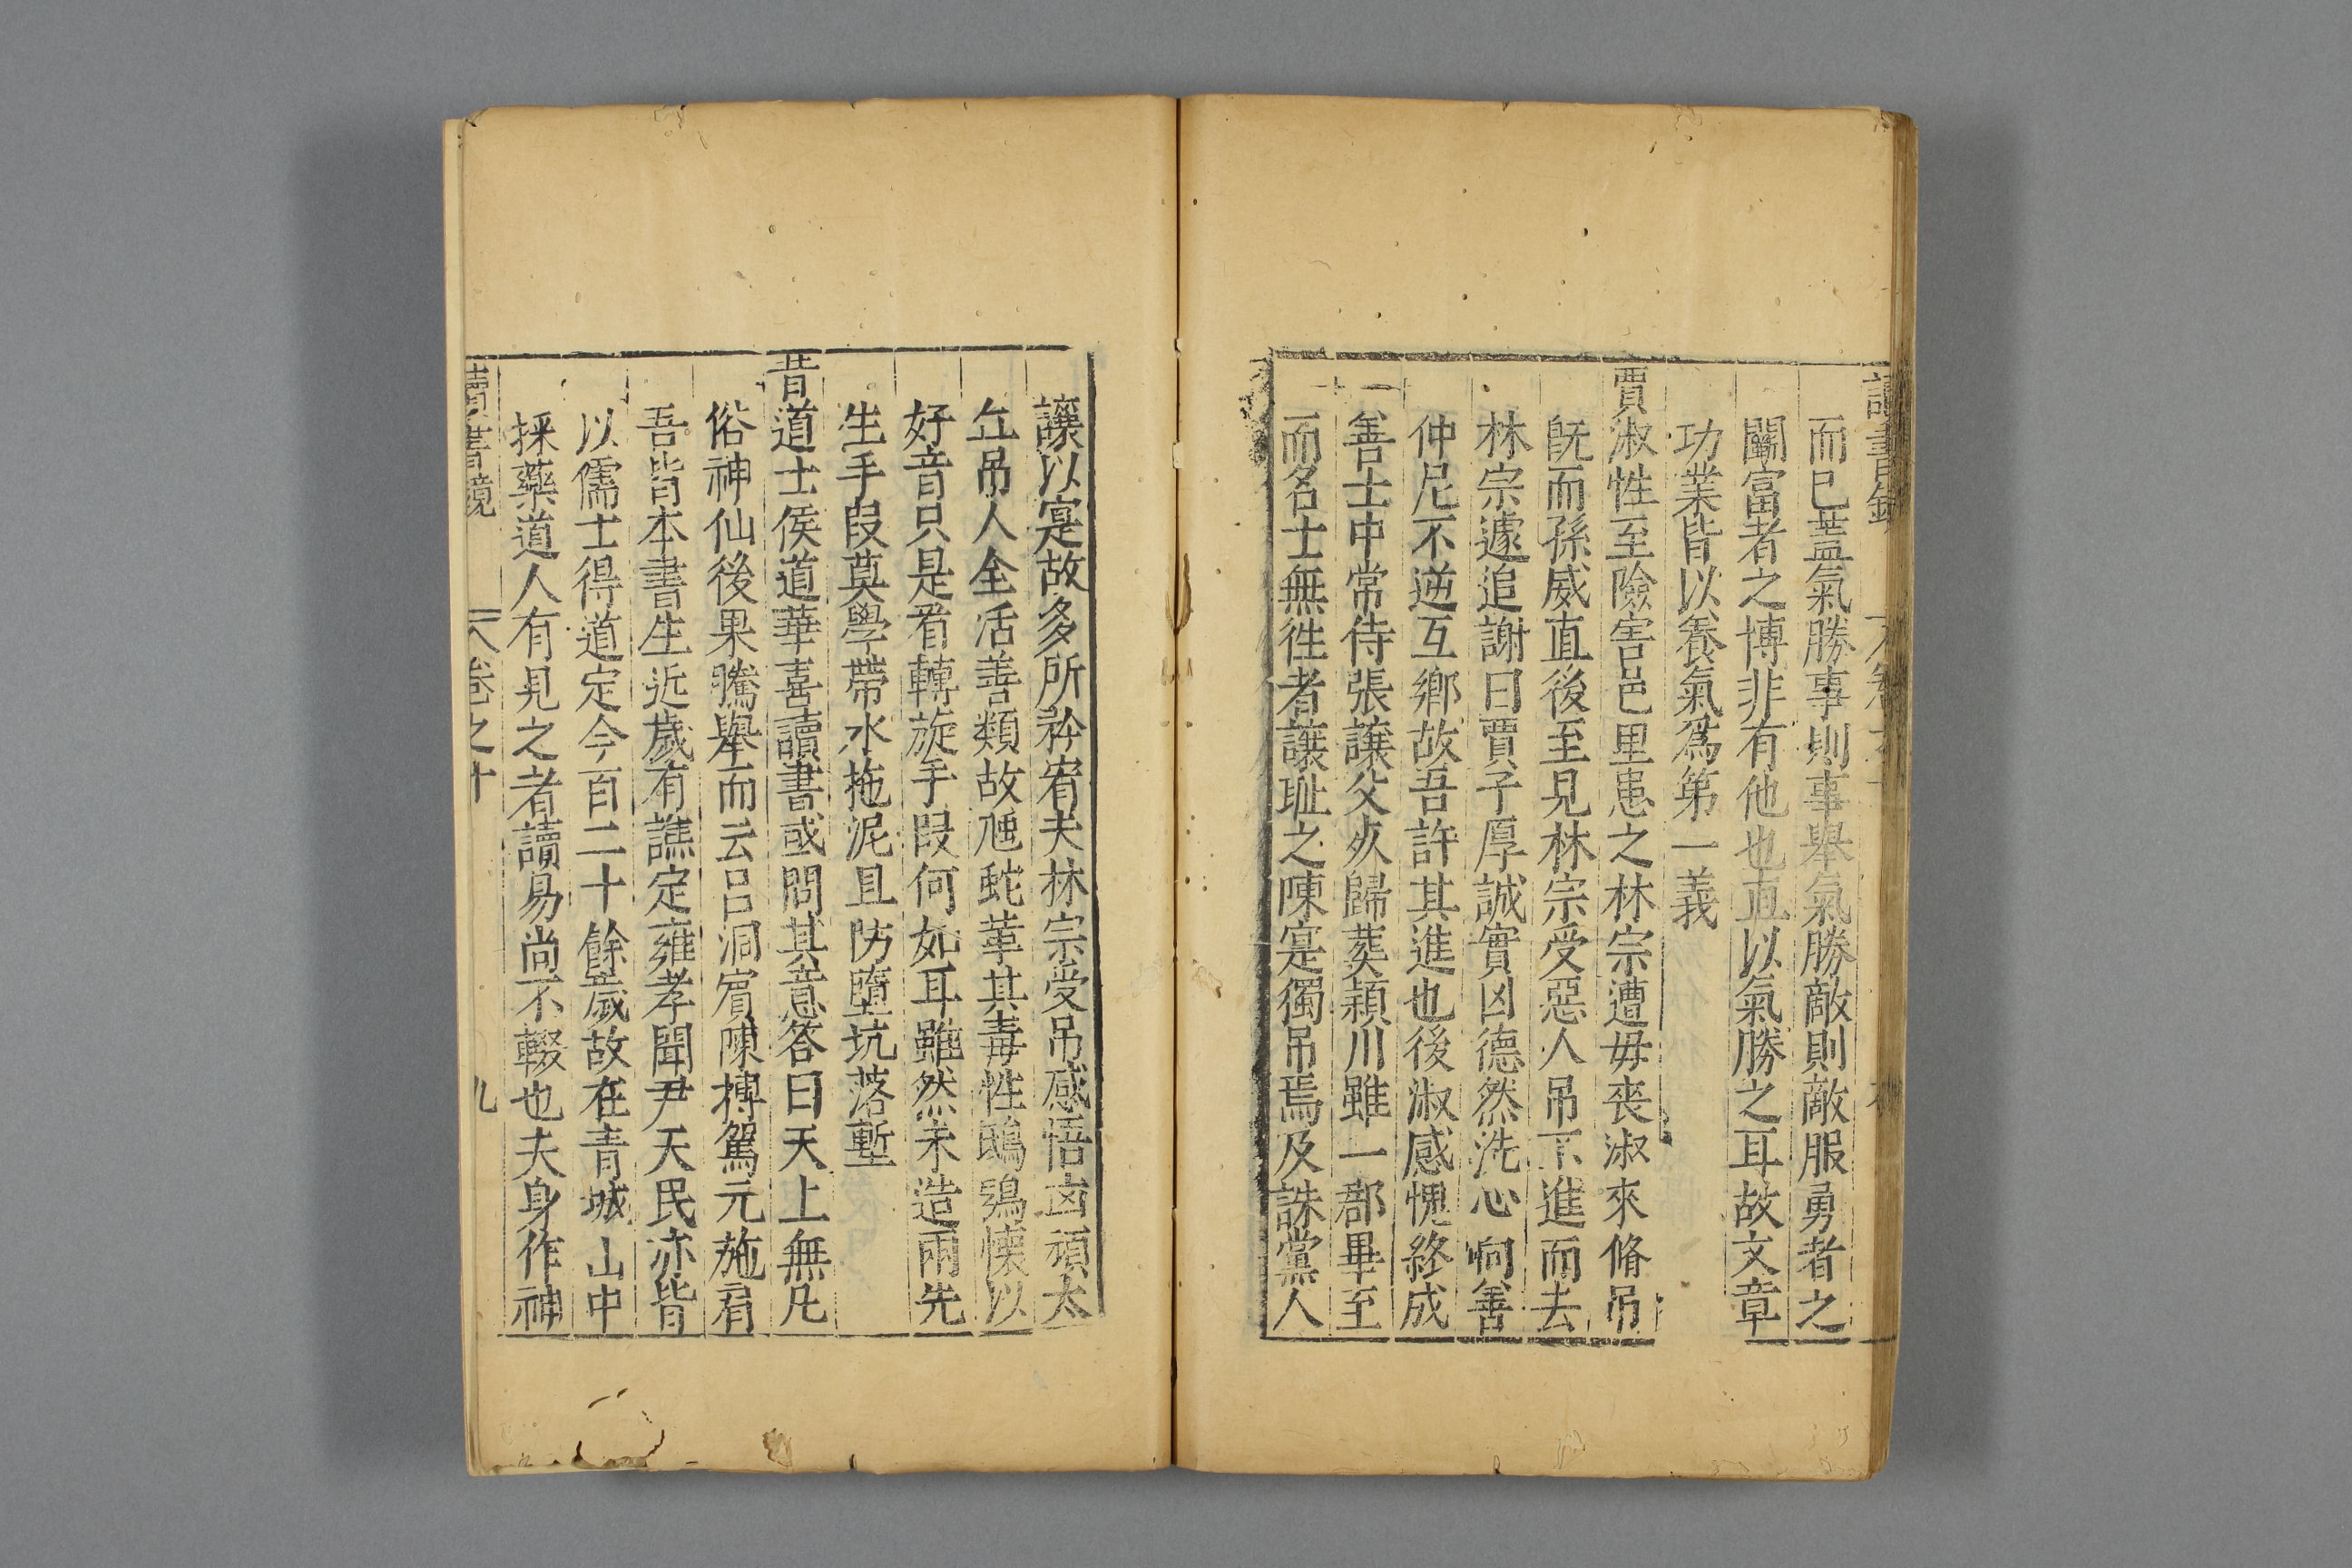 讀書鏡
而已蓋氣勝事則事舉氣勝敵則敵服勇者之
鬬富者之博非有他也直以氣勝之耳故文章
功業皆以養氣爲第一義
賈淑性至險害邑里患之林宗遭毋喪淑來脩吊
旣而孫威直後至見林宗受惡人吊不進而去
林宗遽追謝曰賈子厚誠實凶德然洗心向善
仲尼不逆互鄉故吾許其進也後淑感愧終成
善士中常侍張讓父死歸葬潁川雖一郡畢至
而名士無徃者讓耻之陳寔獨吊焉及誅黨人
讓以寔故多所矜宥夫林宗受吊感悟凶頑太
丘吊人全活善類故虺蛇革其毒性鴟鴞懷以
好音只是看轉旋手段何如耳雖然未造兩先
生手段莫學帶水拖泥且防墮坑落塹
昔道士侯道華喜讀書或問其意答曰天上無凡
俗神仙後果騰舉而云呂洞賓陳摶鴐元施肩
吾皆本書生近歲有譙定雍孝聞尹天民亦皆
以儒士得道定今百二十餘歲故在青城山中
採藥道人有見之者讀易尚不輟也夫身作神
讀書鏡 卷之十 九